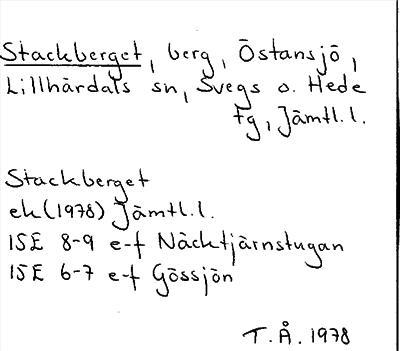 Stackberget, berg, Östansjö,
Lillhärdals sn, Svegs o. Hede
tg, Jämtl.l.
Stackberget
ek (1978) Jämtl.l.
15E 8-9 e-f Näcktjärnstugan
15E 6-7 e-f Gössjön
T.Å. 1978